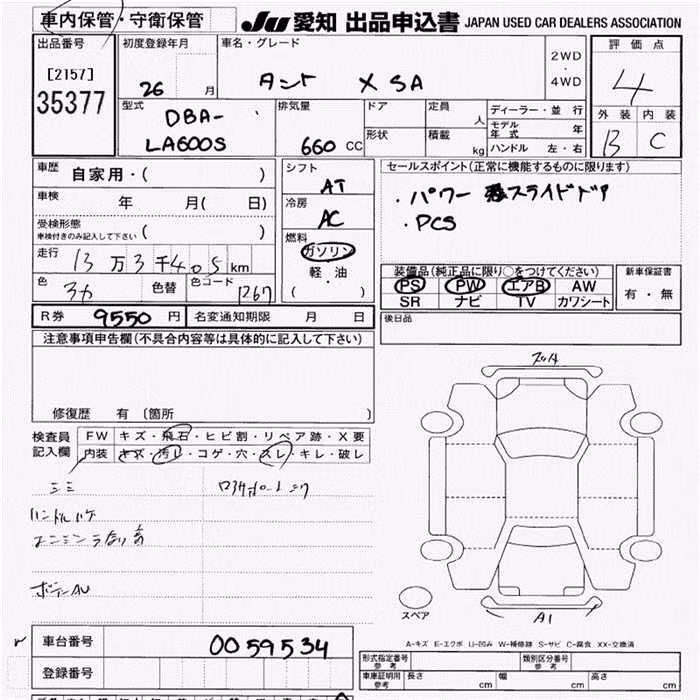 車内保管・守衛保管 JU 愛知 出品申込書 JAPAN USED CAR DEALERS ASSOCIATION
出品番号 [2157] 35377
初度登録年月 26 月
車名・グレード タント X SA
2WD・4WD
評価点 4
外装 内装
B C
型式 DBA-
LA600S
排気量 660 CC
ドア 定員 人
形状 積載 kg
ディーラー・並行
モデル年式 年
ハンドル 左・右
車歴 自家用・( )
車検 年 月( 日)
受検形態 ( )
車検付きのみ記入して下さい
走行 13万3千405km
色 色替 色コード
シフト AT
冷房 AC
燃料 ガソリン
軽・油
( )
セールスポイント(正常に機能するものに限ります)
・パワースライドドア
・PCS
装備品(純正品に限り○をつけてください)
PS PW エアB AW
SR ナビ TV カワシート
新車保証書
有・無
R券 9550 円 名変通知期限 月 日
後日品
注意事項申告欄(不具合内容等は具体的に記入して下さい)
修復歴 有 〔箇所 〕
検査員記入欄
FW キズ・飛石・ヒビ割・リペア跡・X要
内装 キズ・汚レ・コゲ・穴・スレ・キレ・破レ
ハンドルハゲ
ボデーAU
A1
スペア
A-キズ E-エクボ U-凹み W-補修跡 S-サビ C-腐食 XX-交換済
車台番号 0059534
登録番号
形式指定番号 参考 類別区分番号 参考
車庫証明用 参考 長さ cm 幅 cm 高さ cm